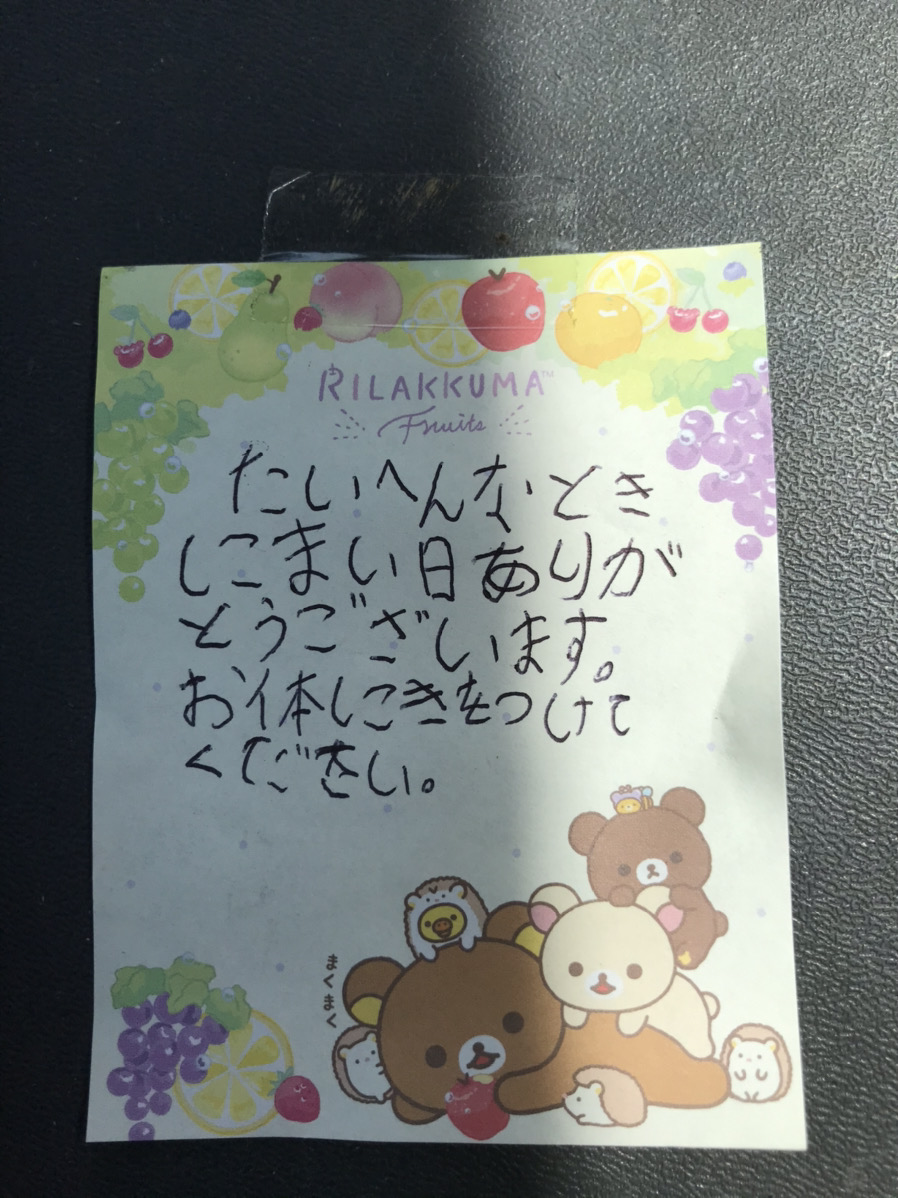 RILAKKUMA™
Fruits
たいへんなとき
にまい日ありが
とうございます。
お体にきをつけて
ください。
まくまく